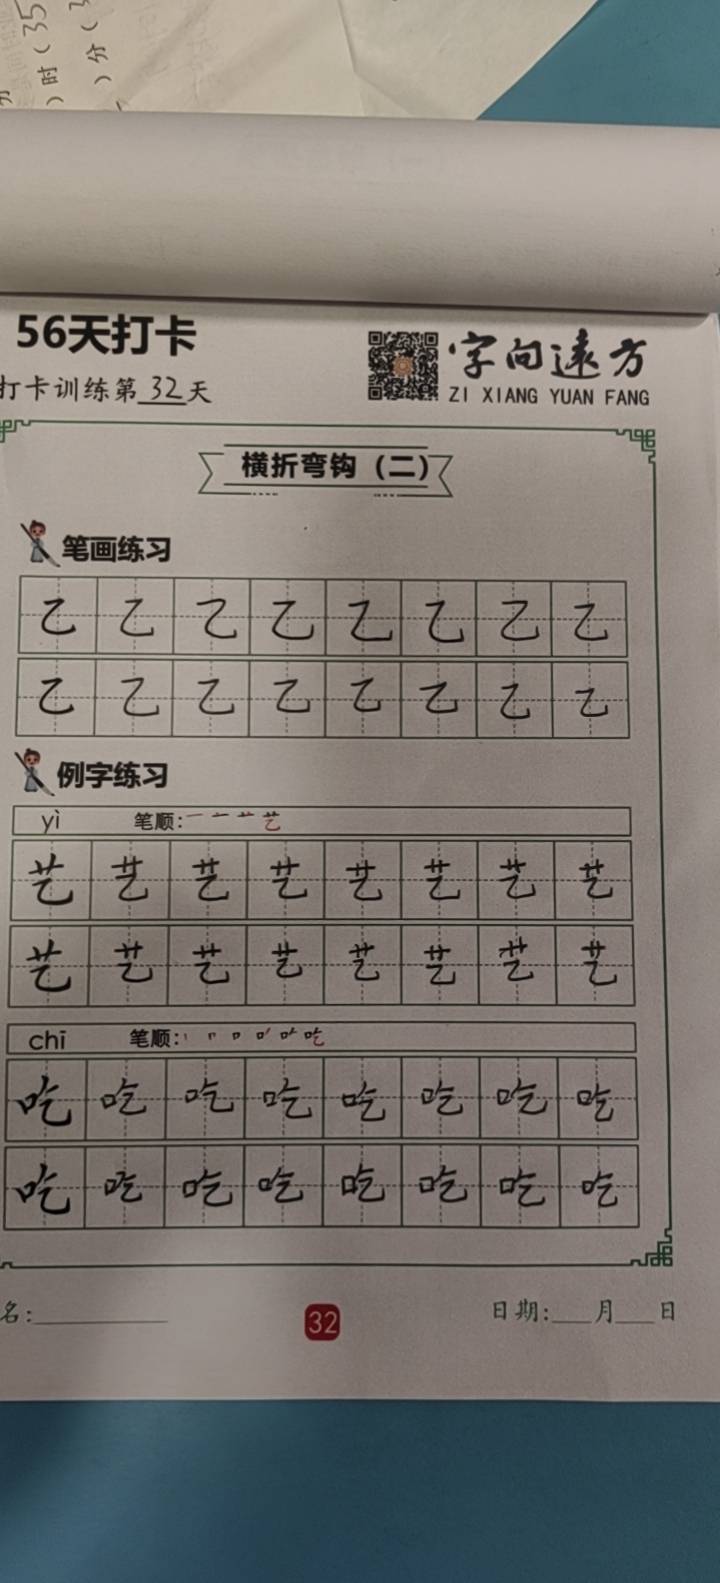 ）时（35
）分（3
56天打卡
打卡训练第32天
字向远方
ZI XIANG YUAN FANG
横折弯钩（二）
笔画练习
乙 乙 乙 乙 乙 乙 乙 乙
乙 乙 乙 乙 乙 乙 乙 乙
例字练习
yì 笔顺: 一 艺
艺 艺 艺 艺 艺 艺 艺 艺
艺 艺 艺 艺 艺 艺 艺 艺
chī 笔顺: 丨 口 吃
吃 吃 吃 吃 吃 吃 吃 吃
吃 吃 吃 吃 吃 吃 吃 吃
名:
32
日期: 月 日